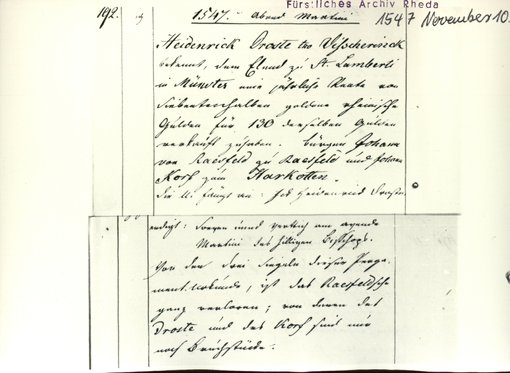 Fürstliches Archiv Rheda
192. 1547. Abend Martini
1547 November 10.
Heidenrick Droste
bekennt, dem Elend zu St. Lamberti
in Münster eine jährliche Rente von
siebentenhalben goldene rheinische
Gulden für 130 derselben Gulden
verkauft zu haben. Bürgen Johann
von Raesfeld zu Raesfeld und Johann
Korf zum Harkotten.
Die U. fängt an: Ick Heidenrick Droste
endigt: am avende
Martini des hilligen Bischops.
Von den drei Siegeln dieser Perga-
ment-Urkunde, ist das Raesfeldsche
ganz verloren; von denen des
Droste und des Korf sind nur
noch Bruchstücke.